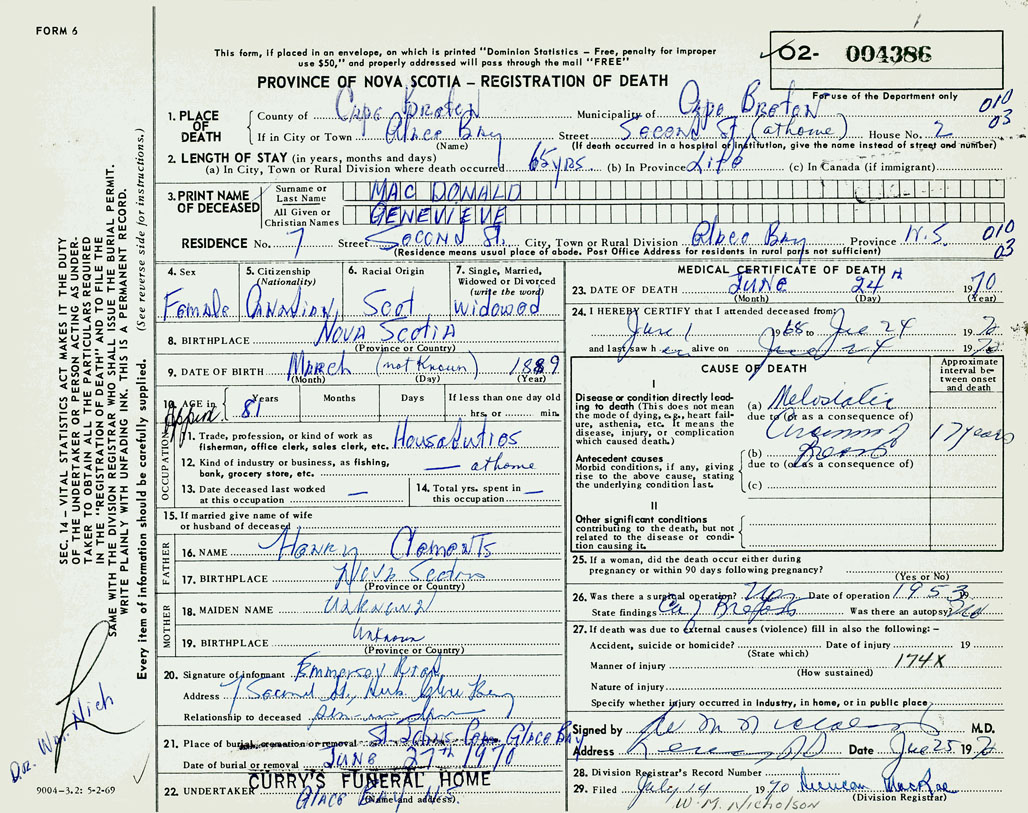 FORM 6
This form, if placed in an envelope, on which is printed "Dominion Statistics – Free, penalty for improper
use $50," and properly addressed will pass through the mail "FREE"
02- 004386
For use of the Department only
PROVINCE OF NOVA SCOTIA – REGISTRATION OF DEATH
010
03
1. PLACE OF DEATH
County of Cape Breton Municipality of Cape Breton
If in City or Town Glace Bay Street Second St (at home) House No. 7
(Name) (If death occurred in a hospital or institution, give the name instead of street and number)
2. LENGTH OF STAY (in years, months and days)
(a) In City, Town or Rural Division where death occurred 65 yrs (b) In Province Life (c) In Canada (if immigrant)
3. PRINT NAME OF DECEASED
Surname or Last Name MAC DONALD
All Given or Christian Names GENEVIEVE
RESIDENCE No. 7 Street Second St. City, Town or Rural Division Glace Bay Province N.S. 010
03
(Residence means usual place of abode. Post Office Address for residents in rural parts not sufficient)
4. Sex
Female
5. Citizenship
(Nationality)
Canadian
6. Racial Origin
Scot
7. Single, Married,
Widowed or Divorced
(write the word)
Widowed
8. BIRTHPLACE Nova Scotia
(Province or Country)
9. DATE OF BIRTH March (not Known) 1889
(Month) (Day) (Year)
10. AGE in Years Months Days If less than one day old
81 hrs. or min.
OCCUPATION
11. Trade, profession, or kind of work as
fisherman, office clerk, sales clerk, etc. House duties
12. Kind of industry or business, as fishing,
bank, grocery store, etc. — at home
13. Date deceased last worked
at this occupation —
14. Total yrs. spent in
this occupation —
15. If married give name of wife
or husband of deceased
FATHER
16. NAME Henry Clements
17. BIRTHPLACE Nova Scotia
(Province or Country)
MOTHER
18. MAIDEN NAME Unknown
19. BIRTHPLACE Unknown
(Province or Country)
20. Signature of informant Emmerson
Address 7 Second St, Glace Bay
Relationship to deceased
21. Place of burial, cremation or removal Glace Bay
Date of burial or removal June 27th 1970
22. UNDERTAKER CURRY'S FUNERAL HOME
Glace Bay N.S.
(Name and address)
MEDICAL CERTIFICATE OF DEATH
23. DATE OF DEATH June 24 1970
(Month) (Day) (Year)
24. I HEREBY CERTIFY that I attended deceased from:
June 1 1968 to June 24 1970
and last saw her alive on June 24 1970
CAUSE OF DEATH
Approximate
interval be-
tween onset
and death
I
Disease or condition directly lead-
ing to death (This does not mean
the mode of dying, e.g., heart fail-
ure, asthenia, etc. It means the
disease, injury, or complication
which caused death.)
(a)
due to (or as a consequence of)
Carcinoma of 17 years
Antecedent causes
Morbid conditions, if any, giving
rise to the above cause, stating
the underlying condition last.
(b) Breast
due to (or as a consequence of)
(c)
II
Other significant conditions
contributing to the death, but not
related to the disease or condi-
tion causing it.
25. If a woman, did the death occur either during
pregnancy or within 90 days following pregnancy?
(Yes or No)
26. Was there a surgical operation? Yes Date of operation 1953 19
State findings Ca of Breast Was there an autopsy? No
27. If death was due to external causes (violence) fill in also the following: –
Accident, suicide or homicide? Date of injury 19
(State which)
Manner of injury 174X
(How sustained)
Nature of injury
Specify whether injury occurred in industry, in home, or in public place
Signed by M.D.
Address Date June 25 1970
28. Division Registrar's Record Number
29. Filed July 14 1970 Duncan MacRae
(Division Registrar)
W. M. Nicholson
SEC. 14 – VITAL STATISTICS ACT MAKES IT THE DUTY
OF THE UNDERTAKER OR PERSON ACTING AS UNDER-
TAKER TO OBTAIN ALL THE PARTICULARS REQUIRED
IN THE "REGISTRATION OF DEATH" AND TO FILE THE
SAME WITH THE DIVISION REGISTRAR WHO SHALL ISSUE THE BURIAL PERMIT.
WRITE PLAINLY WITH UNFADING INK. THIS IS A PERMANENT RECORD.
Every item of information should be carefully supplied. (See reverse side for instructions.)
9004–3.2: 5-2-69